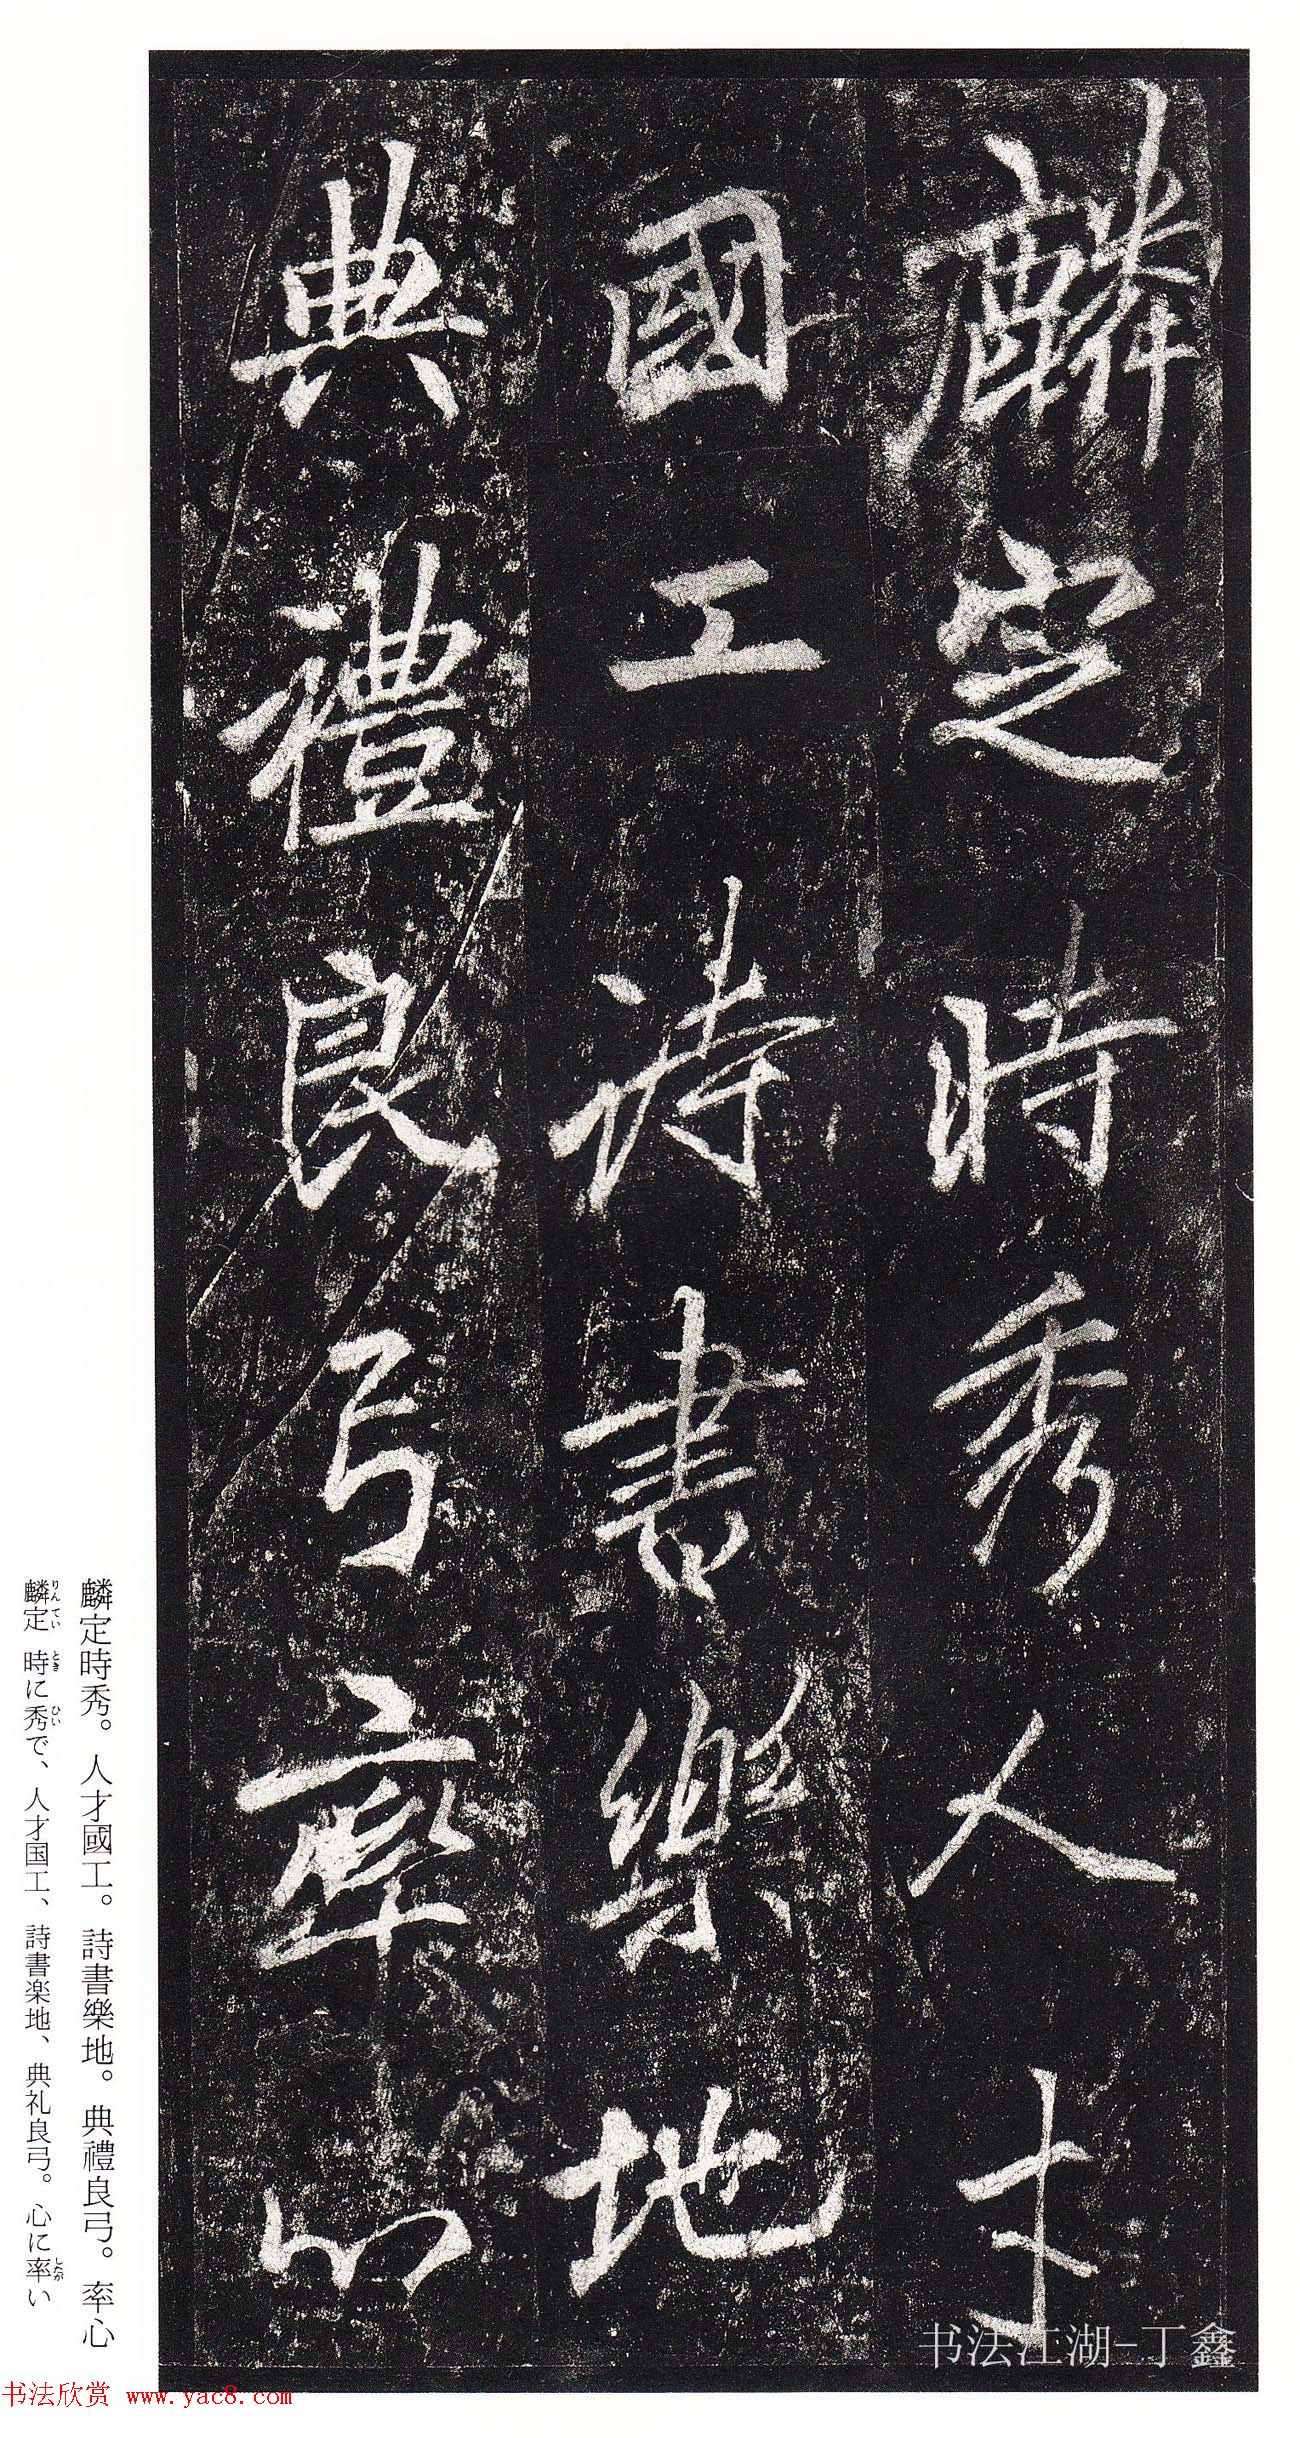 麟定時秀人才
國工詩書樂地
典禮良弓率心
麟定時秀。人才國工。詩書樂地。典禮良弓。率心
麟定りんてい 時ときに秀ひいで、人才国工、詩書楽地、典礼良弓。心に率したがい
书法江湖-丁鑫
书法欣赏 www.yac8.com